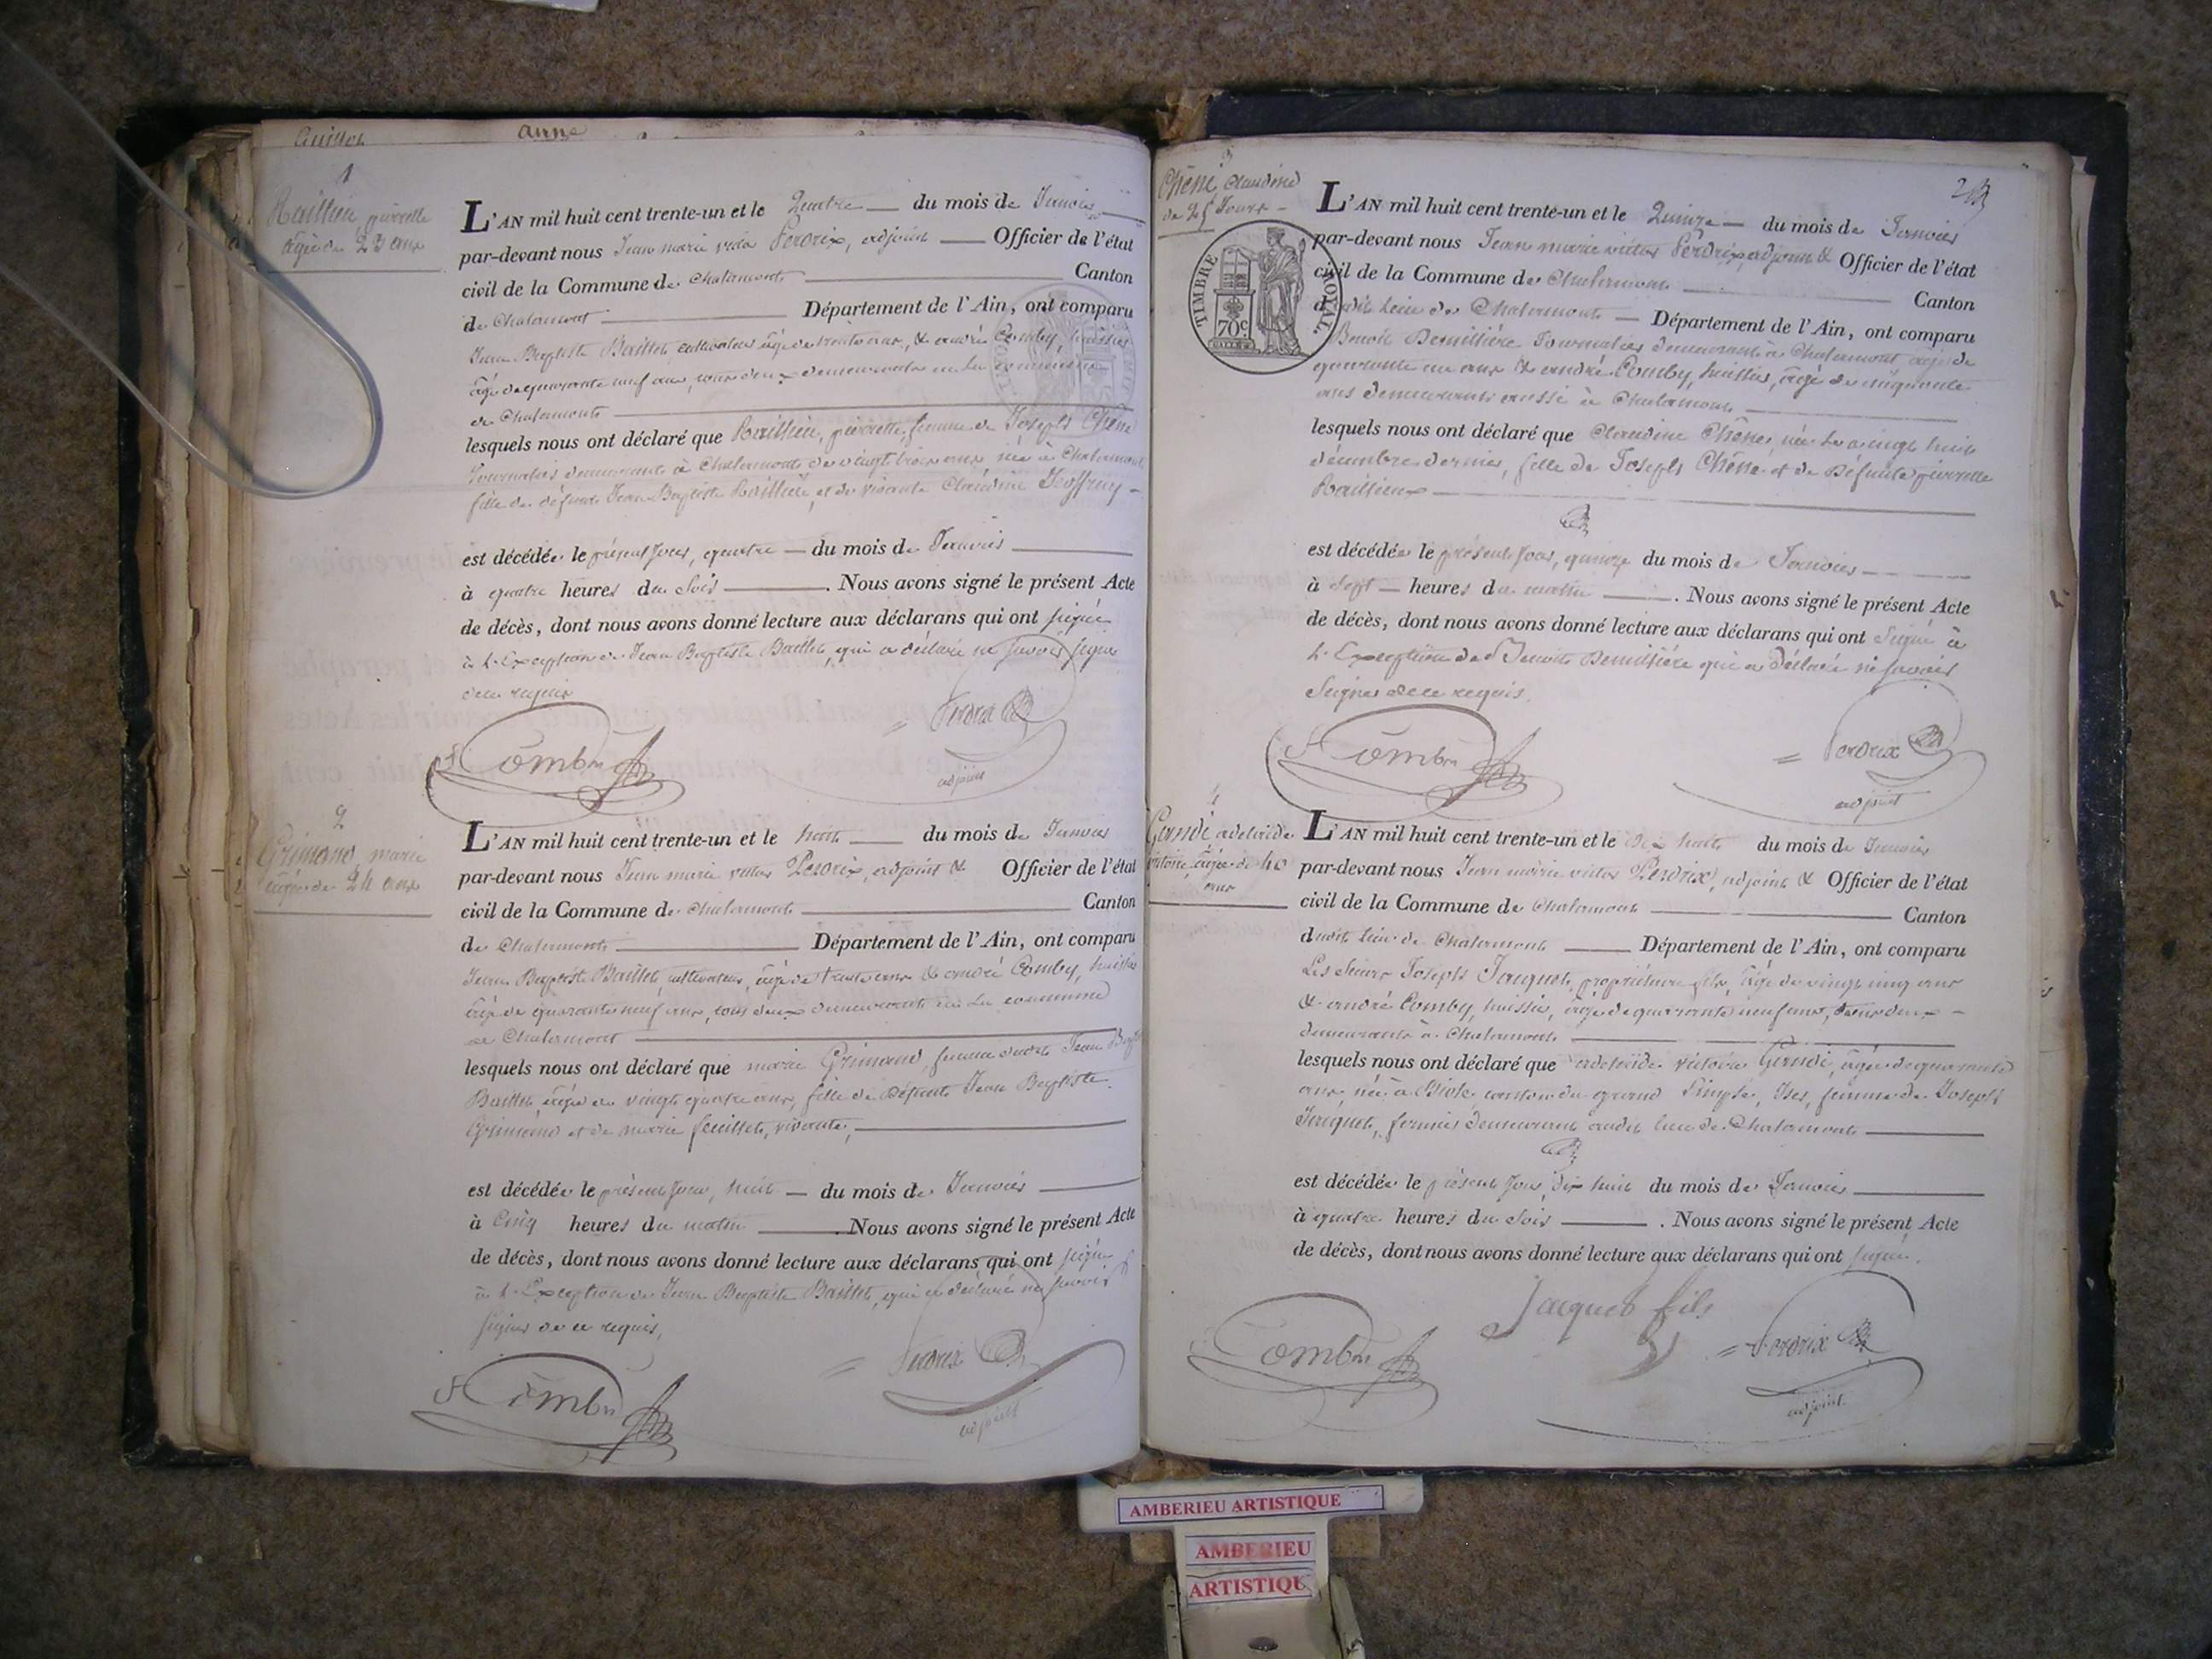 Anne
1
Raillieu, pierrette
âgée de 23 ans
L'AN mil huit cent trente-un et le Quatre du mois de Janvier
par-devant nous Jean marie victor Perdrix, adjoint Officier de l'état
civil de la Commune de Chalamont Canton
de Chalamont Département de l'Ain, ont comparu
Jean Baptiste Baillet, cultivateur âgé de trente ans, & andré Comby, huissier
âgé de quarante neuf ans, tous deux demeurants en la commune
de Chalamont
lesquels nous ont déclaré que Raillieu, pierrette, femme de Joseph Chêne
Journalier demeurant à Chalamont de vingt trois ans née à Chalamont
fille de défunt Jean Baptiste et de vivante Claudine Geoffray
est décédée le présent jour, quatre du mois de Janvier
à quatre heures du Soir . Nous avons signé le présent Acte
de décès, dont nous avons donné lecture aux déclarans qui ont signé
à l'Exception de Jean Baptiste Baillet, qui a déclaré ne savoir signer
de ce requis
Comby Perdrix
adjoint
2
Grimand, marie
âgée de 24 ans
L'AN mil huit cent trente-un et le huit du mois de Janvier
par-devant nous Jean marie victor Perdrix, adjoint & Officier de l'état
civil de la Commune de Chalamont Canton
de Chalamont Département de l'Ain, ont comparu
Jean Baptiste Baillet, cultivateur, âgé de trente ans & andré Comby, huissier
âgé de quarante neuf ans, tous deux demeurants en la commune
de Chalamont
lesquels nous ont déclaré que marie Grimand, femme dudit Jean
Baillet, âgée de vingt quatre ans, fille de Défunt Jean Baptiste
Grimand et de marie feuillet, vivante,
est décédée le présent jour, huit du mois de Janvier
à Cinq heures du matin . Nous avons signé le présent Acte
de décès, dont nous avons donné lecture aux déclarans qui ont signé
à l'Exception de Jean Baptiste Baillet, qui a déclaré ne savoir
signer de ce requis,
Comby Perdrix
adjoint
3
Chêne, Claudine
de Jours
TIMBRE ROYAL
70c
L'AN mil huit cent trente-un et le Quinze du mois de Janvier
par-devant nous Jean marie victor Perdrix, adjoint & Officier de l'état
civil de la Commune de Chalamont Canton
dudit lieu de Chalamont Département de l'Ain, ont comparu
Benoit Demillière Journalier demeurant à Chalamont âgé de
quarante un ans & andré Comby, huissier, âgé de cinquante
ans demeurants aussi à Chalamont
lesquels nous ont déclaré que Claudine Chêne, née le vingt huit
décembre dernier, fille de Joseph Chêne et de Défunte pierrette
Raillieux
est décédée le présent jour, quinze du mois de Janvier
à Sept heures du matin . Nous avons signé le présent Acte
de décès, dont nous avons donné lecture aux déclarans qui ont Signé à
l'Exception de Benoit Demillière qui a déclaré ne savoir
Signer de ce requis.
Comby Perdrix
adjoint
4
Gandi adelaïde
victoire, âgée de 40
ans
L'AN mil huit cent trente-un et le Dix huit du mois de Janvier
par-devant nous Jean marie victor Perdrix, adjoint & Officier de l'état
civil de la Commune de Chalamont Canton
dudit lieu de Chalamont Département de l'Ain, ont comparu
Les Sieurs Joseph Jacquet, propriétaire fils, âgé de vingt cinq ans
& andré Comby, huissier, âgé de quarante neuf ans, tous deux
demeurants à Chalamont
lesquels nous ont déclaré que adelaïde victoire Gandi, âgée de quarante
ans née à canton du grand femme de Joseph
Jacquet, fermier demeurant audit lieu de Chalamont
est décédée le présent Jour, dix huit du mois de Janvier
à quatre heures du Soir . Nous avons signé le présent Acte
de décès, dont nous avons donné lecture aux déclarans qui ont signé.
Jacquet fils
Comby Perdrix
adjoint
AMBERIEU ARTISTIQUE
AMBERIEU
ARTISTIQU